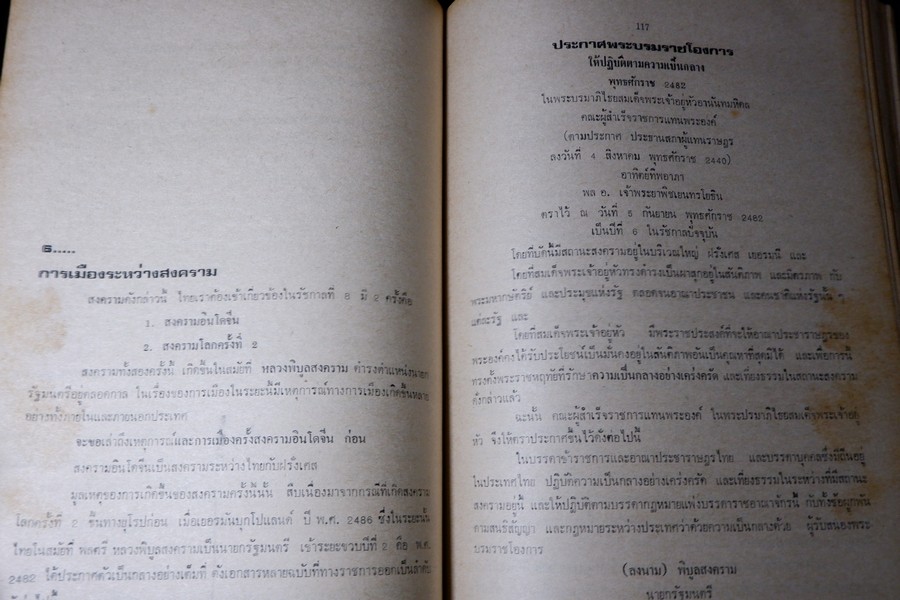 ๕.....
การเมืองระหว่างสงคราม
สงครามดังกล่าวนี้ ไทยเราต้องเข้าเกี่ยวข้องในรัชกาลที่ 8 มี 2 ครั้งคือ
1. สงครามอินโดจีน
2. สงครามโลกครั้งที่ 2
สงครามทั้งสองครั้งนี้ เกิดขึ้นในสมัยที่ หลวงพิบูลสงคราม ดำรงตำแหน่งนายก
รัฐมนตรีอยู่ตลอดกาล ในเรื่องของการเมืองในระยะนี้มีเหตุการณ์ทางการเมืองเกิดขึ้นหลาย
อย่างทั้งภายในและภายนอกประเทศ
จะขอเล่าถึงเหตุการณ์และการเมืองครั้งสงครามอินโดจีน ก่อน
สงครามอินโดจีนเป็นสงครามระหว่างไทยกับฝรั่งเศส
มูลเหตุของการเกิดขึ้นของสงครามครั้งนี้นั้น สืบเนื่องมาจากกรณีที่เกิดสงคราม
โลกครั้งที่ 2 ขึ้นทางยุโรปก่อน เมื่อเยอรมันบุกโปแลนด์ ปี พ.ศ. 2486 ซึ่งในระยะนั้น
ไทยในสมัยที่ พลตรี หลวงพิบูลสงครามเป็นนายกรัฐมนตรี เข้าระยะขวบปีที่ 2 คือ พ.ศ.
2482 ได้ประกาศตัวเป็นกลางอย่างเต็มที่ ดังเอกสารหลายฉบับที่ทางราชการออกเป็นลำดับ
117
ประกาศพระบรมราชโองการ
ให้ปฏิบัติตามความเป็นกลาง
พุทธศักราช 2482
ในพระบรมาภิไธยสมเด็จพระเจ้าอยู่หัวอานันทมหิดล
คณะผู้สำเร็จราชการแทนพระองค์
(ตามประกาศ ประธานสภาผู้แทนราษฎร
ลงวันที่ 4 สิงหาคม พุทธศักราช 2440)
อาทิตย์ทิพอาภา
พล อ. เจ้าพระยาพิชเยนทรโยธิน
ตราไว้ ณ วันที่ 5 กันยายน พุทธศักราช 2482
เป็นปีที่ 6 ในรัชกาลปัจจุบัน
โดยที่บัดนี้มีสถานะสงครามอยู่ในบริเตนใหญ่ ฝรั่งเศส เยอรมนี และ
โดยที่สมเด็จพระเจ้าอยู่หัวทรงดำรงเป็นผาสุกอยู่ในสันติภาพ และมิตรภาพ กับ
พระมหากษัตริย์ และประมุขแห่งรัฐ ตลอดจนอาณาประชาชน และคนชาติแห่งรัฐนั้น ๆ
แต่ละรัฐ และ
โดยที่สมเด็จพระเจ้าอยู่หัว มีพระราชประสงค์ที่จะให้อาณาประชาราษฎรของ
พระองค์คงได้รับประโยชน์เป็นมั่นคงอยู่ในสันติภาพอันเป็นคุณหาที่สุดมิได้ และเพื่อการนี้
ทรงตั้งพระราชหฤทัยที่รักษาความเป็นกลางอย่างเคร่งครัด และเที่ยงธรรมในสถานะสงคราม
ดังกล่าวแล้ว
ฉะนั้น คณะผู้สำเร็จราชการแทนพระองค์ ในพระปรมาภิไธยสมเด็จพระเจ้าอยู่
หัว จึงให้ตราประกาศขึ้นไว้ดังต่อไปนี้
ในบรรดาข้าราชการและอาณาประชาราษฎรไทย และบรรดาบุคคลซึ่งมีถิ่นอยู่
ในประเทศไทย ปฏิบัติความเป็นกลางอย่างเคร่งครัด และเที่ยงธรรมในระหว่างที่มีสถานะ
สงครามอยู่นี้ และให้ปฏิบัติตามบรรดากฎหมายแห่งบรรดาราชอาณาจักรนี้ กับทั้งข้อผูกพัน
ตามสนธิสัญญา และกฎหมายระหว่างประเทศว่าด้วยความเป็นกลางด้วย ผู้รับสนองพระ
บรมราชโองการ
(ลงนาม) พิบูลสงคราม
นายกรัฐมนตรี